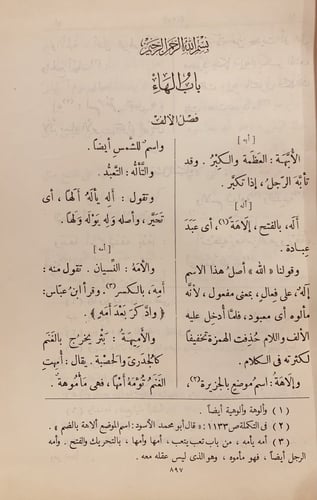 بسم الله الرحمن الرحيم
باب الهاء
فصل الألف
[ أبه ]
الأُبَّهَةُ : العَظَمة والكِبْرُ . وقد
تأَبَّهَ الرجلُ ، إذا تكبَّر .
[ أله ]
أَلَهَ ، بالفتح ، إلَاهَةً (١)، أى عَبَدَ
عِبادة .
وقولنا « الله » أصلُ هذا الاسم
إلَاهٌ ، على فِعالٍ ، بمعنى مفعول ، لأنّه
مألوه أى معبود ، فلمَّا أدخلت عليه
الألف واللام حُذِفت الهمزة تخفيفاً
لكثرته فى الكلام .
وإلَاهَةُ : اسم موضع بالجزيرة (٢)،
واسمٌ للشمسِ أيضاً .
والتَأَلُّهُ : التعبُّد .
وتقول : أَلِهَ يَأْلَهُ أَلَهاً ، أى
تحيَّر ، وأصله وَلِهَ يَوْلَهُ وَلَهاً .
[ أمه ]
والأَمَهُ : النِّسيان . تقول منه :
أَمِهَ ، بالكسر (٣). وقرأ ابنُ عبَّاس :
﴿ وادَّكَرَ بَعْدَ أَمَهٍ ﴾ .
والأَمِيهَةُ : بَثْرٌ يخرُج بالغَنَم
كالجُدَرِىّ والحَصْبة . يقال : أُمِهَتِ
الغَنَمُ تُؤْمَهُ أَمْهاً ، فهى مَأْمُوهَةٌ .
( ١ ) وألوهة وألوهية أيضاً .
( ٢ ) فى التكملة ص ١١٣٣ : « قال أبو محمد الأسود : اسم الموضع ألاهة بالضم » .
( ٣ ) أمه يأمه ، من باب تعب يتعب ، أمها وأمها ، بالتحريك والفتح . وأمه
الرجل أيضاً ، فهو مأموه ، وهو الذى ليس عقله معه .
٨٩٧